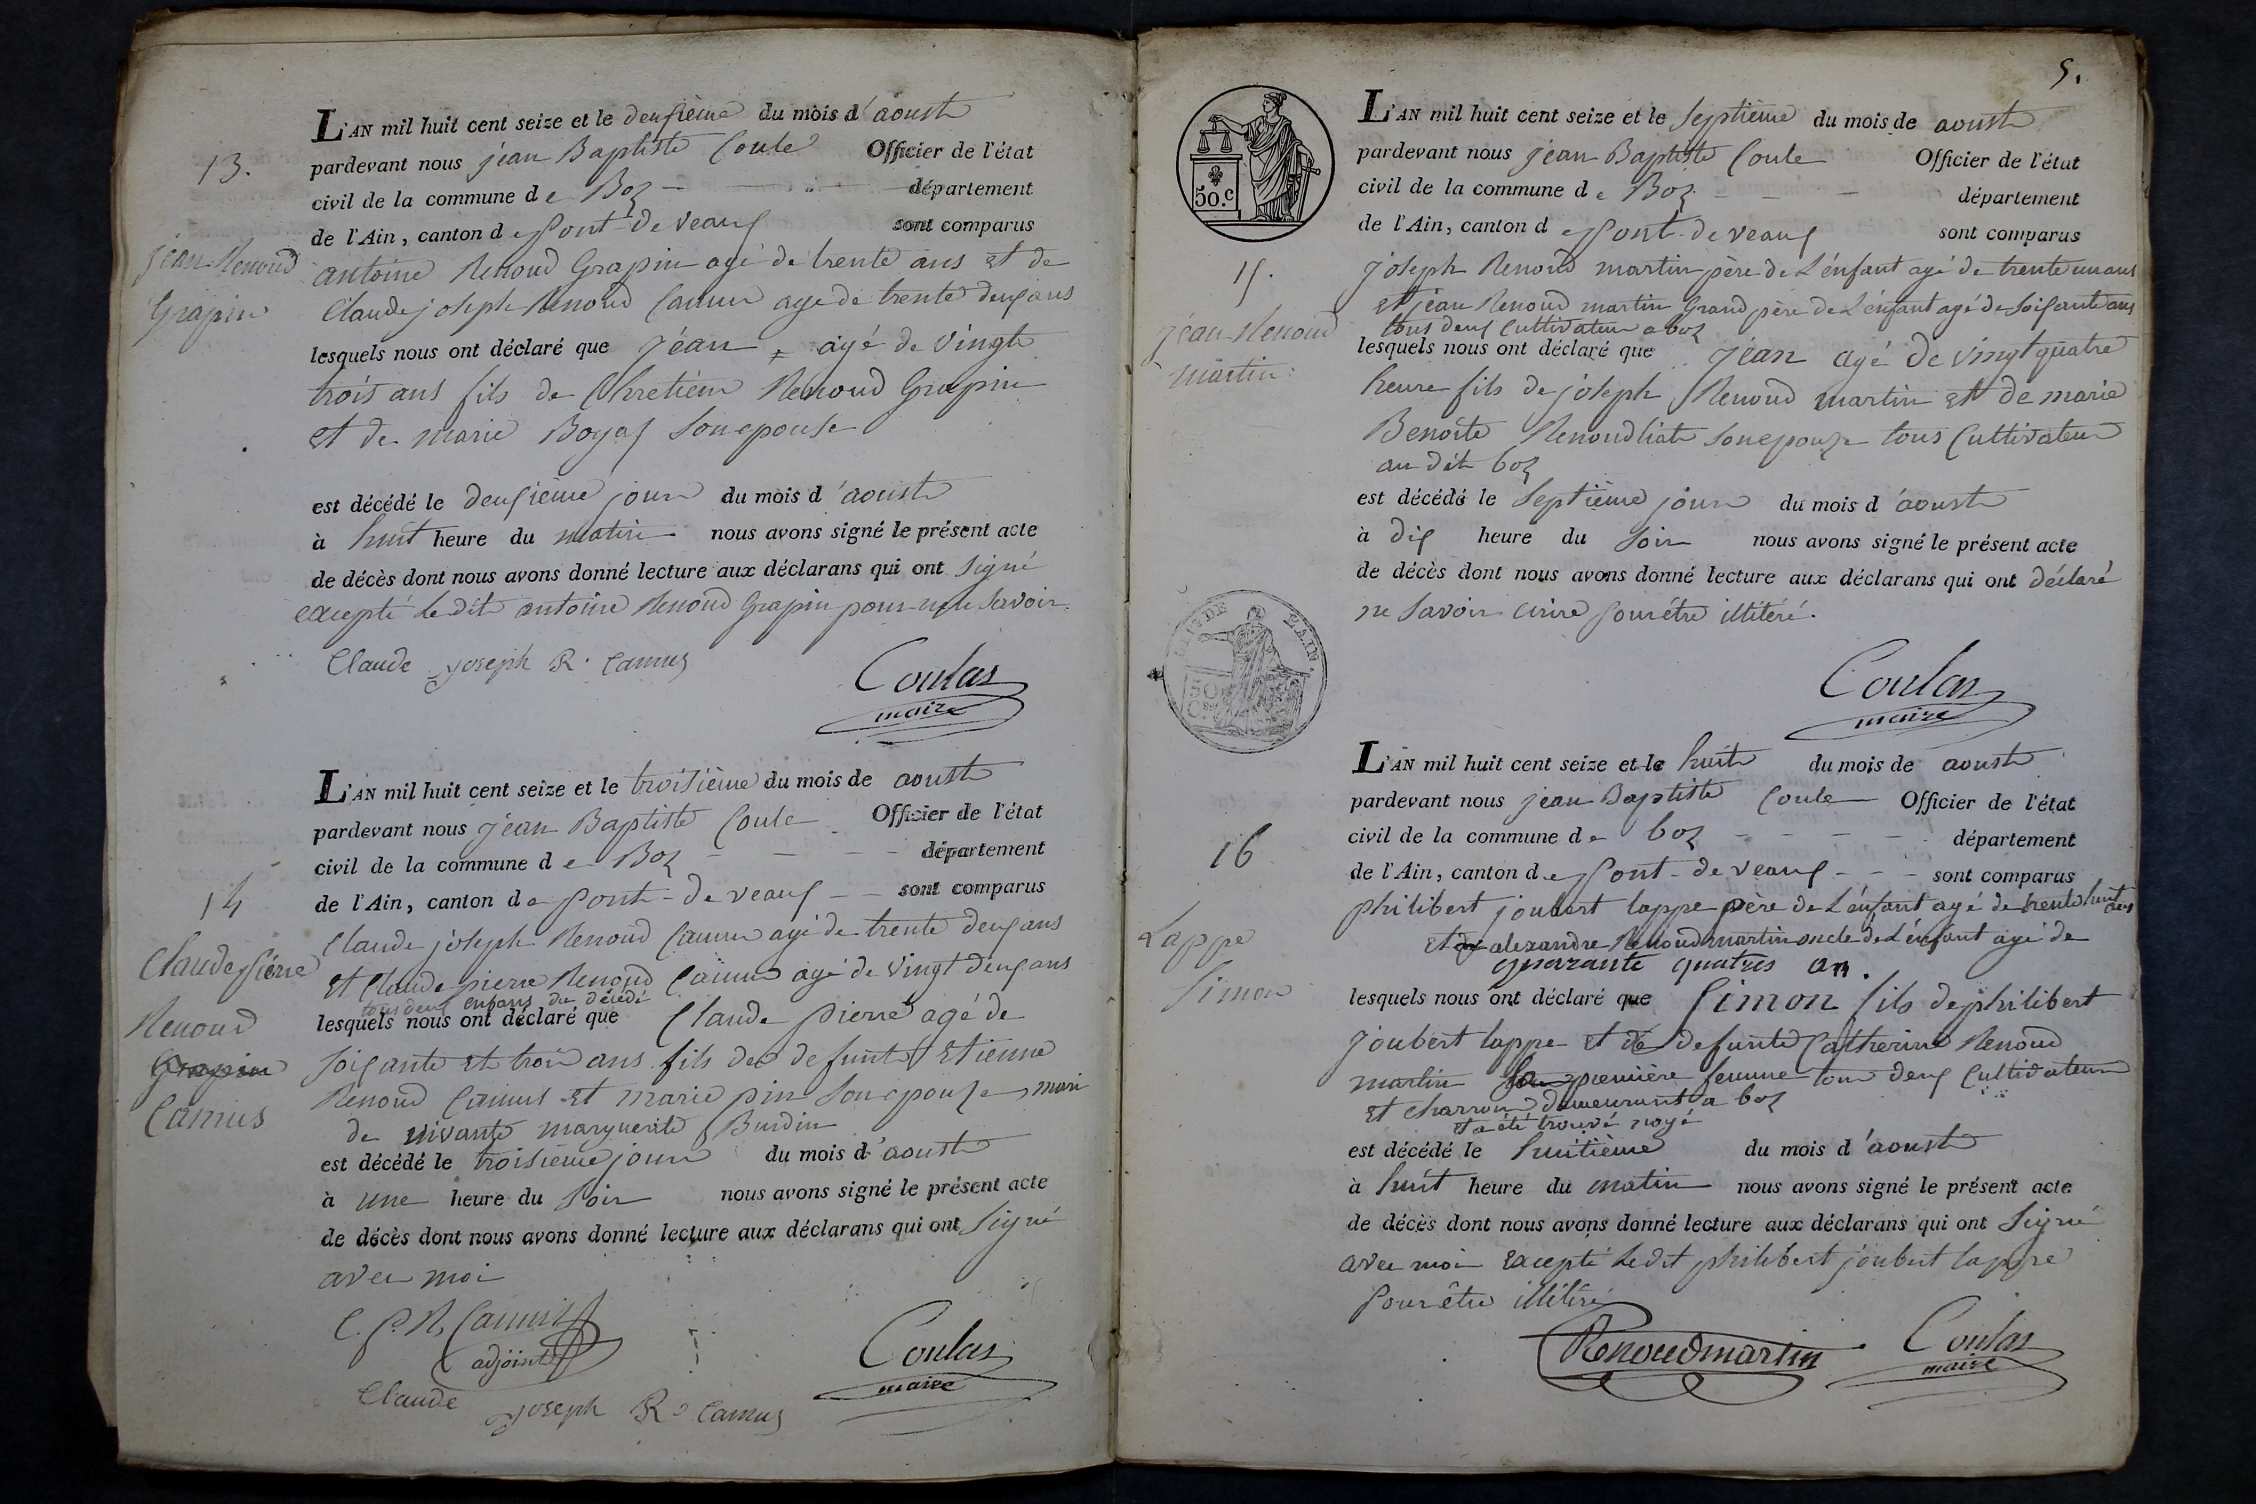 13.
Jean Renoud
Grapin
L'AN mil huit cent seize et le deusième du mois d'aoust
pardevant nous jean Baptiste Coula Officier de l'état
civil de la commune de Boz département
de l'Ain, canton de pont-de veaux sont comparus
antoine Renoud Grapin agé de trente ans et de
Claude joseph Renoud Camu agé de trente deux ans
lesquels nous ont déclaré que jéan agé de vingt
trois ans fils de Chretien Renoud Grapin
et de marie Boyat son epouse
est décédé le deusième jour du mois d'aoust
à huit heure du matin nous avons signé le présent acte
de décès dont nous avons donné lecture aux déclarans qui ont signé
excepté le dit antoine Renoud Grapin pour ne le savoir.
Claude joseph R. Camus
Coulas
maire
14
Claude pierre
Renoud
Grapin
Camus
L'AN mil huit cent seize et le troisième du mois de aoust
pardevant nous jean Baptiste Coula Officier de l'état
civil de la commune de Boz département
de l'Ain, canton de pont-de veaux sont comparus
Claude joseph Renoud Camu agé de trente deux ans
et Claude pierre Renoud Camu agé de vingt deux ans
tous deux enfans du décédé
lesquels nous ont déclaré que Claude pierre agé de
soixante et trois ans fils de defunt Etienne
Renoud Camus et marie pin son epouse mari
de vivante marguerite Burdin
est décédé le troisième jour du mois d'aoust
à une heure du soir nous avons signé le présent acte
de décès dont nous avons donné lecture aux déclarans qui ont signé
avec moi
C. P. R. Camus
adjoint
Coulas
maire
Claude joseph R. Camus
5.
50.c
15.
jéan Renoud
martin
L'AN mil huit cent seize et le septième du mois de aoust
pardevant nous jean Baptiste Coula Officier de l'état
civil de la commune de Boz département
de l'Ain, canton de pont-de veaux sont comparus
joseph Renoud martin père de L'énfant agé de trente un ans
et jéan Renoud martin Grand père de L'énfant agé de soixante ans
tous deux cultivateur a boz
lesquels nous ont déclaré que jéan agé de vingt quatre
heure fils de joseph Renoud martin et de marie
Benoite Renoud liate son epouze tous Cultivateur
au dit boz
est décédé le septième jour du mois d'aoust
à dix heure du soir nous avons signé le présent acte
de décès dont nous avons donné lecture aux déclarans qui ont déclaré
ne savoir ecrire pour être illitéré.
DE L'AIN.
50
Coulas
maire
16
Lappe
Simon
L'AN mil huit cent seize et le huit du mois de aoust
pardevant nous jean Baptiste Coula Officier de l'état
civil de la commune de boz département
de l'Ain, canton de pont-de veaux sont comparus
philibert joubert lappe père de L'énfant agé de trente huit ans
et alexandre Renoud martin oncle de L'énfant agé de
quarante quatres an.
lesquels nous ont déclaré que Simon fils de philibert
joubert lappe et de defunte Catherine Renoud
martin sa première femme tous deux Cultivateur
et charron demeurant a boz
et a été trouvé noyé
est décédé le huitième du mois d'aoust
à huit heure du matin nous avons signé le présent acte
de décès dont nous avons donné lecture aux déclarans qui ont signé
avec moi excepté ledit philibert joubert lappe
pour être illitéré
Renoudmartin
Coulas
maire